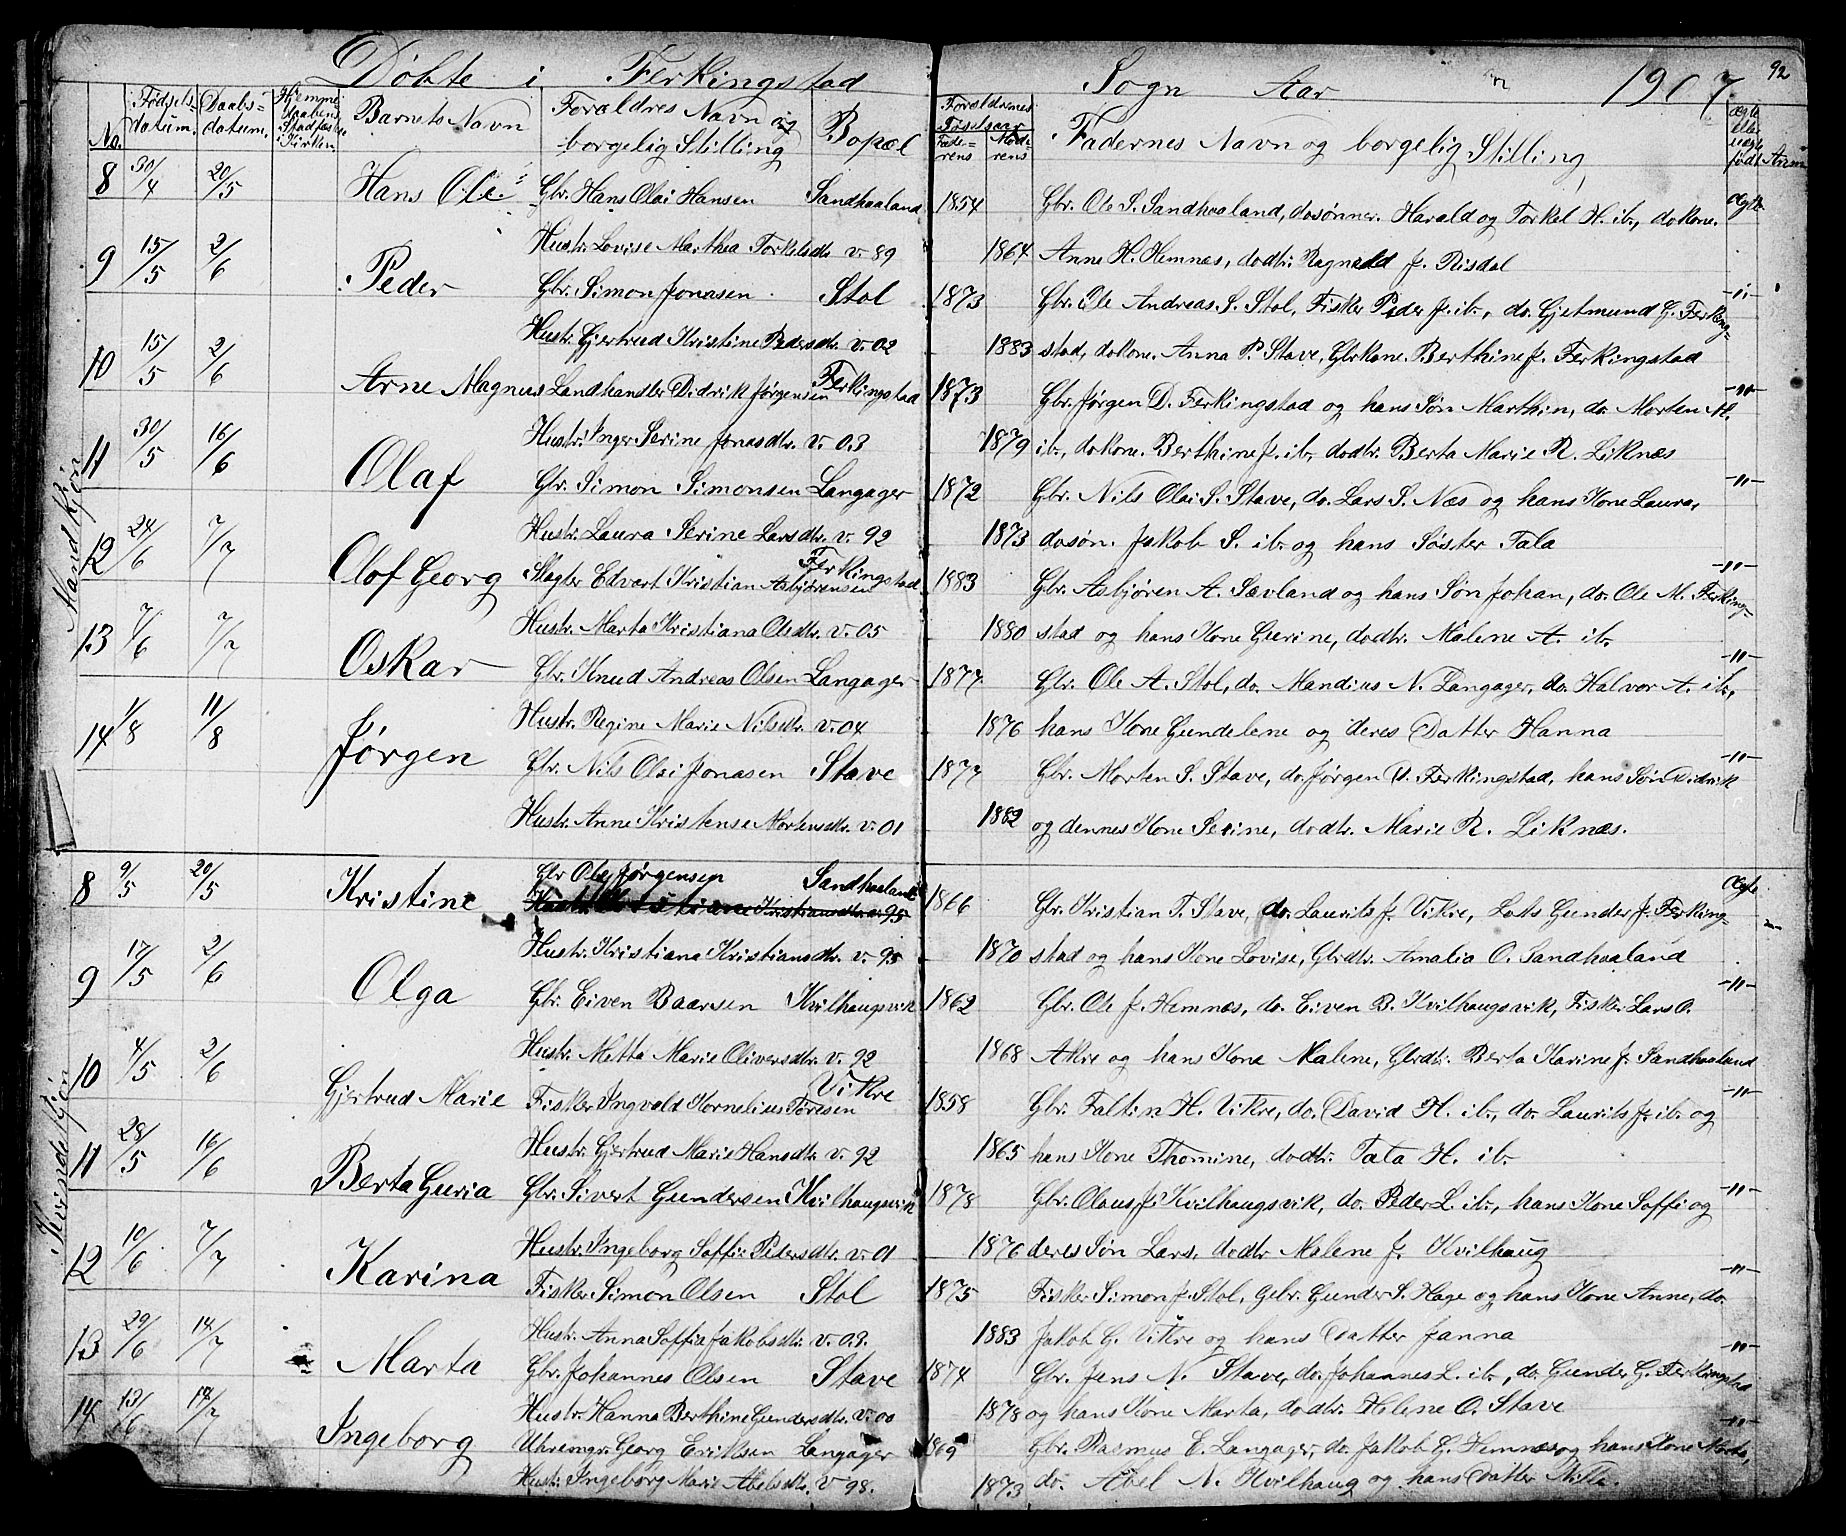 Døbte i Ferkingstad Sogn Aar 1907. 92
No. Fødsels-datum. Daabs-datum. Barnets Navn Forældres Navn og borgelig Stilling Bopæl Forældrenes Fødselsaar Faderens Moderens Faddernes Navn og borgelig Stilling
Mandkjøn
8 30/4 20/5 Hans Ole Gbr. Hans Olai Hansen Sandhaaland 1854 Gbr. Ole S. Sandhaaland, dosønner. Harald og Torkel H. ib., dokone. Ægte
Hustr. Lovise Marthea Torkelsdtr. v. 89 1864 Anne H. Hemnæs, dodtr. Ragnald J. Risdal
9 15/5 2/6 Peder Gbr. Simon Jonasen Stol 1873 Gbr. Ole Andreas S. Stol, Fisker Peder J. ib., do. Gjetmund G. Ferking- -"-
Hustr. Gjertrud Kristine Pedersdtr. v. 02 1883 stad, dokone. Anna P. Stave, Gbrkone. Berthine J. Ferkingstad
10 15/5 2/6 Arne Magnus Landhandler Didrik Jørgensen Ferkingstad 1873 Gbr. Jørgen D. Ferkingstad og hans Søn Marthin, do. Morten M. -"-
Hustr. Inger Serine Jonasdtr. v. 03 1879 ib., dokone. Berthine J. ib., dodtr. Berta Marie R. Liknæs
11 30/5 16/6 Olaf Gbr. Simon Simonsen Langager 1872 Gbr. Nils Olai S. Stave, do. Lars S. Næs og hans Kone Laura, -"-
Hustr. Laura Serine Larsdtr. v. 92 1873 dosøn. Jakob S. ib. og hans Søster Tala
12 24/6 7/7 Olof Georg Slagter Edvart Kristian Asbjørensen Ferkingstad 1883 Gbr. Asbjøren A. Sævland og hans Søn Johan, do. Ole M. Ferking- -"-
Hustr. Marta Kristiana Olsdtr. v. 05 1880 stad og hans Kone Gurine, dodtr. Malene A. ib.
13 7/6 7/7 Oskar Gbr. Knud Andreas Olsen Langager 1877 Gbr. Ole A. Stol, do. Mandius N. Langager, do. Halvor A. ib., -"-
Hustr. Regine Marie Nilsdtr. v. 04 1876 hans Kone Gundelene og deres Datter Hanna
14 1/8 11/8 Jørgen Gbr. Nils Olai Jonasen Stave 1877 Gbr. Morten S. Stave, do. Jørgen D. Ferkingstad, hans Søn Didrik -"-
Hustr. Anne Kristense Mortensdtr. v. 01 1882 og dennes Kone Serine, dodtr. Marie R. Liknæs.
Kvindekjøn
8 9/5 20/5 Kristine Gbr Ole Jørgensen Sandhaaland 1866 Gbr. Kristian T. Stave, do. Laurits J. Vikre, Lots Gunder J. Ferking- Ægte
Hustr. Kristiana Kristiansdtr. v. 95 1870 stad og hans Kone Lovise, Gbrdtr. Amalia O. Sandhaaland
9 17/5 2/6 Olga Gbr. Eiven Baarsen Kvilhaugsvik 1862 Gbr. Ole J. Hemnæs, do. Eiven B. Kvilhaugsvik, Fisker Lars O. -"-
Hustr. Metta Marie Oliversdtr. v. 92 1868 Akre og hans Kone Malene, Gbrdtr. Berta Karine J. Sandhaaland
10 4/5 2/6 Gjertrud Marie Fisker Ingvald Kornelius Toresen Vikre 1858 Gbr. Faltin H. Vikre, do. David H. ib., do. Laurits J. ib. og -"-
Hustr. Gjertrud Marie Hansdtr. v. 92 1865 hans Kone Thomine, dodtr. Tala H. ib.
11 28/5 16/6 Berta Guria Gbr. Sivert Gundersen Kvilhaugsvik 1878 Gbr. Olaus J. Kvilhaugsvik, do. Peder L. ib., hans Kone Soffi og -"-
Hustr. Ingeborg Soffie Pedersdtr. v. 01 1876 deres Søn Lars, dodtr. Malene J. Kvilhaug
12 10/6 7/7 Karina Fisker Simon Olsen Stol 1875 Fisker Simon J. Stol, Gebr. Gunder S. Hage og hans Kone Anne, do. -"-
Hustr. Anna Soffia Jakobsdtr. v. 03. 1883 Jakob G. Vikre og hans Datter Janna
13 29/6 14/7 Marta Gbr. Johannes Olsen Stave 1874 Gbr. Jens N. Stave, do. Johannes L. ib., do. Gunder G. Ferkingstad -"-
Hustr. Hanna Berthine Gundersdtr. v. 00 1878 og hans Kone Marta, dodtr. Helene O. Stave
14 13/6 14/7 Ingeborg Uhremgr. Georg Eriksen Langager 1869 Gbr. Rasmus E. Langager, do. Jakob G. Hemnæs og hans Kone Marta, -"-
Hustr. Ingeborg Marie Abelsdtr. v. 98. 1873 do. Abel N. Kvilhaug og hans Datter